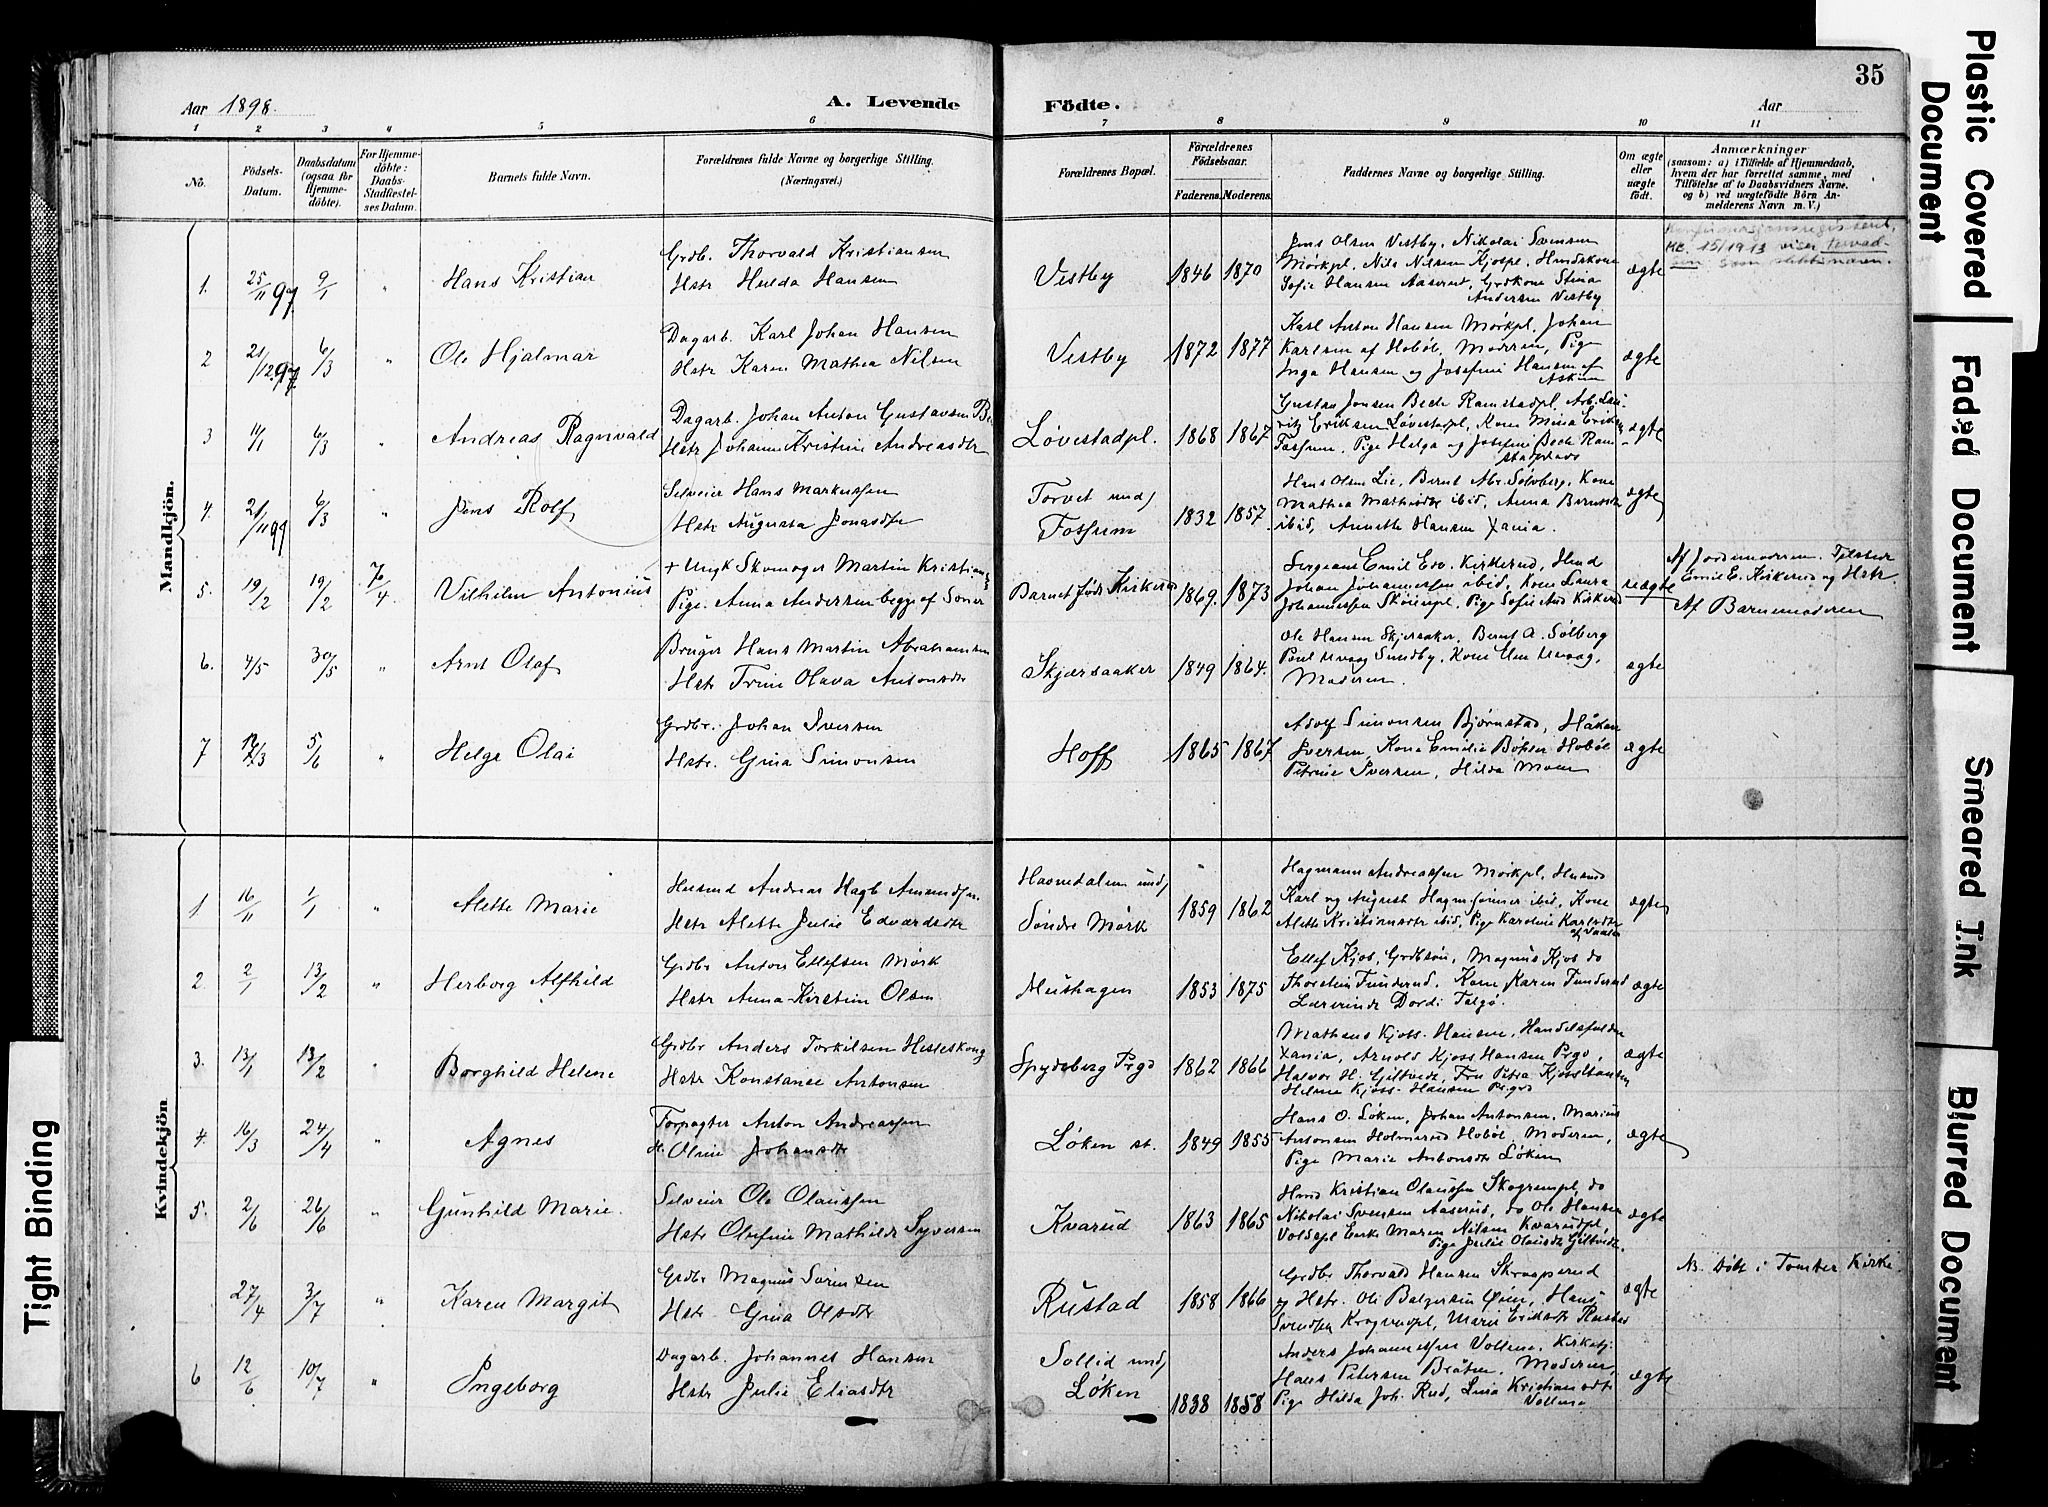 35
Aar 1898. A. Levende Födte. Aar
1 2 3 4 5 6 7 8 9 10 11
No.
Födsels-Datum.
Daabsdatum (ogsaa for Hjemme-döbte).
For Hjemme-döbte: Daabs-Stadfæstel-ses Datum.
Barnets fulde Navn.
Forældrenes fulde Navne og borgerlige Stilling.
(Næringsvei.)
Forældrenes Bopæl.
Forældrenes Födselsaar.
Faderens. Moderens.
Faddernes Navne og borgerlige Stilling.
Om ægte eller uægte födt.
Anmærkninger
(saasom: a) i Tilfælde af Hjemmedaab,
hvem der har forrettet samme, med
Tilföielse af to Daabsvidners Navne.
og b) ved uægtefödte Börn An-
melderens Navn m. V.)
Mandkjön.
1. 25/11 97 9/1 " Hans Kristian
Grdb. Thorvald Kristiansen
Hstr Hulda Hansen
Vestby 1846 1870
Jens Olsen Vestby, Nikolai Svensen
Mörkpl, Nils Nilsen Kjospl, Hmdskone
Sofie Hansen Aaserud, Grdkone Stina
Andersen Vestby
ægte
KE. 15/1913 viser
2 21/12 97 6/3 " Ole Hjalmar
Dagarb. Karl Johan Hansen
Hstr Karen Mathea Nilsen
Vestby 1872 1877
Karl Anton Hansen Mörkpl, Johan
Karlsen af Hobøl, Moderen, Pige
Inga Hansen og Josefine Hansen af
Askim
ægte
3 14/1 6/3 " Andreas Ragnvald
Dagarb. Johan Anton Gustavsen
Hstr Johanne Kristine Andreasdtr
Løvestadpl. 1868 1867
Gustav Jonsen Bede Ramstadpl, Arb. Lau-
ritz Eriksen Løvestadpl, Kone Mina Eriksen
Fossum, Pige Helga og Josefine Bede Ram
ægte
4. 21/11 97 6/3 " Jens Rolf
Selveier Hans Markussen
Hstr Augusta Jonasdtr
Torvet und/ Fossum 1832 1857.
Hans Olsen Lie, Bernt Abr. Sølvberg, Kone
Mathea Mathisdtr ibid, Anna Berntsdtr
ibid, Annette Hansen Xania.
ægte
5. 19/2 19/2 7/4. Vilhelm Antonius
+ Ungk Skomager Martin Kristiansen
Pige. Anna Andersen begge af Soner
Barnet født Kirkerud 1869. 1873
Sergeant Emil Ev. Kirkerud, Hmd
Johan Johannessen ibid, Kone Laura
Johannessen Sköienpl, Pige Sofie And Kirkerud
uægte
Af Jordemoderen. Tilstede
Emil E. Kirkerud og Hstr
Af Barnemoderen
6. 4/5 30/5 " Arnt Olaf
Bruger Hans Martin Abrahamsen
Hstr Trine Olava Antonsdtr
Skjersaaker 1849 1864.
Ole Hansen Skjersaker, Bernt A. Sølberg
Poul Uvaag Sundby, Kone Uvaag,
Moderen.
ægte
7 17/3 5/6 " Helge Olai
Grdbr. Johan Iversen
Hstr. Gina Simonsen
Hoff 1865 1867
Adolf Simonsen Bjørnstad, Håkon
Iversen, Kone Emilie Bøhler Hobøl
Petrine Iversen, Hilda Moen
ægte
Kvindekjön
1 16/11 1/1 " Alette Marie
Husmd Andreas Hagb Amundsen.
Hstr Alette Julie Edvardsdtr
Havnedalen und/ Søndre Mørk 1859 1862
Hagmann Andreassen Mørkpl, Husmd
Karl og August Hagmsønner ibid, Kone
Alette Kristiansdtr ibid, Pige Karoline Karlsdtr
af Vaaler
ægte
2 2/1 13/2 " Herborg Alfhild
Grdbr Anton Ellefsen Mørk
Hstr Anna-Kirstine Olsen.
Hushagen 1853 1875
Ellef Kjos, Grdbsøn, Magnus Kjos do
Thorstein Funderud, Kone Karen Funderud
Lærerinde Dordi Felgø.
ægte
3. 13/1 13/2 " Borghild Helene
Grdbr Anders Torkilsen Hesteskong
Hstr Konstanse Antonsen
Spydeberg Prgd 1862 1866
Matheus Kjoss-Hansen, Handelsfuldm
Xania, Arnold Kjoss Hansen Prgd,
Halvor H. Giltvedt, Fru Petra Kjoss Hansen
Helene Kjoss-Hansen Prgd
ægte
4. 16/3 24/4 " Agnes
Forpagter Anton Andreassen
H. Oline Johansdtr
Løken st. 1849 1855
Hans O. Løken, Johan Antonsen, Marius
Antonsen Holmerud Hobøl, Moderen,
Pige Marie Antonsdtr Løken
ægte
5. 2/6 26/6 " Gunhild Marie.
Selveier Ole Olaussen
Hstr Olufine Mathilde Syversen
Kvarud 1863 1865
Hmd Kristian Olaussen Skogrempl, do
Nikolai Svensen Aaserud, do Ole Hansen
Voldspl Enke Maren Nilsen Kvarudpl,
Pige Julie Olausdtr Giltvedt.
ægte
27/4 3/7 " Karen Margit
Grdbr Magnus Sørensen
Hstr. Gina Olsdtr
Rustad 1858 1866
Grdbr Thorvald Hansen Skraaperud
og Hstr. Oli Balgersen Øien, Hans
Svendsen Kragrudpl, Marie Eriksdtr Rustad
ægte
NB. Døbt i Tomter Kirke.
6 12/6 10/7 " Ingeborg
Dagarb. Johannes Hansen
Hstr Julie Eliasdtr
Sollid und/ Løken 1838 1858
Anders Johannessen Vollene, Kirketj:
Hans Petersen Bråten, Moderen,
Pige Hilda Joh. Rud, Lina Kristiansdtr
Vollene
ægte
Plastic Covered Document
Faded Document
Smeared Ink
Blurred Document
Tight Binding